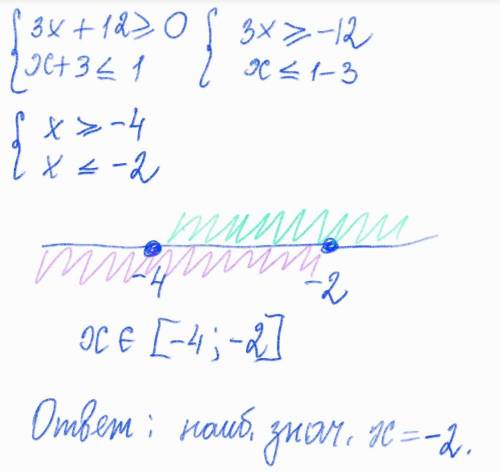 { 3x + 12 ⩾ 0 { 3x ⩾ -12
{ x + 3 ≤ 1 { x ≤ 1 - 3
{ x ⩾ -4
{ x ≤ -2
-4 -2
x ∈ [-4; -2]
Ответ: наиб. знач. x = -2.